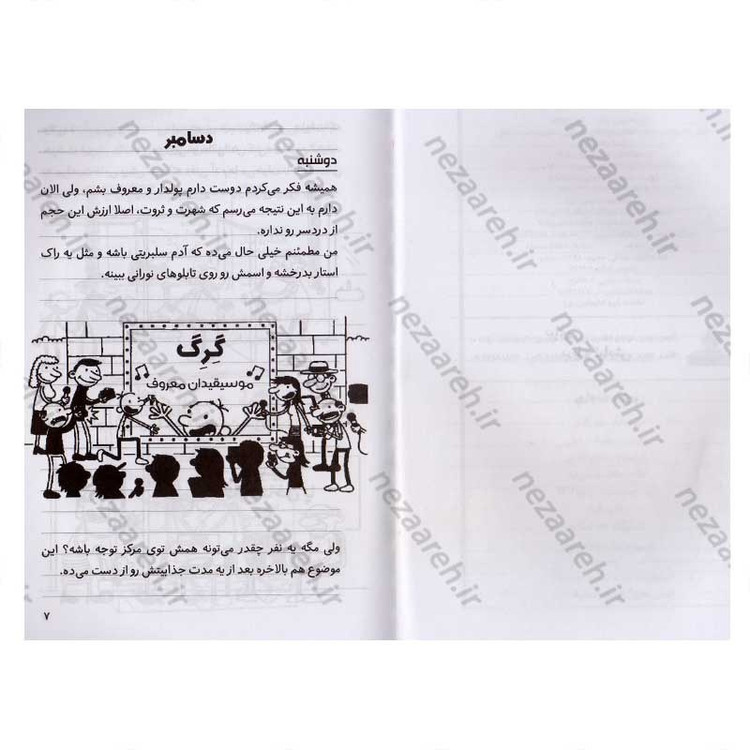 دسامبر
دوشنبه
همیشه فکر می‌کردم دوست دارم پولدار و معروف بشم، ولی الان
دارم به این نتیجه می‌رسم که شهرت و ثروت، اصلا ارزش این حجم
از دردسر رو نداره.
من مطمئنم خیلی حال می‌ده که آدم سلبریتی باشه و مثل یه راک
استار بدرخشه و اسمش رو روی تابلوهای نورانی ببینه.
گرِگ
موسیقیدان معروف
ولی مگه یه نفر چقدر می‌تونه همش توی مرکز توجه باشه؟ این
موضوع هم بالاخره بعد از یه مدت جذابیتش رو از دست می‌ده.
۷
nezaareh.ir
nezaareh.ir
nezaareh.ir
nezaareh.ir
nezaareh.ir
nezaareh.ir
nezaareh.ir
nezaareh.ir
nezaareh.ir